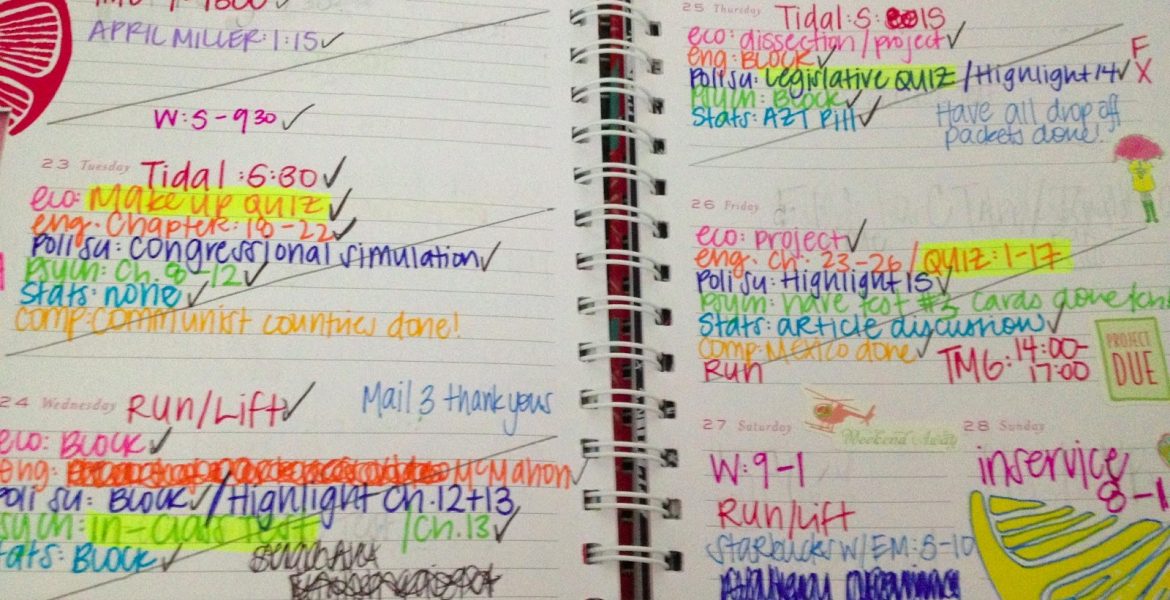 APRIL MILLER: 1:15✓
W: 5-930 ✓
23 Tuesday Tidal: 5:30✓
eco: Make up QUIZ ✓
eng: Chapter: 18-22✓
Poli su: congressional simulation✓
Psych: Ch. 8 -12✓
Stats: none ✓
comp: communist countries done!
24 Wednesday RUN/Lift✓
Mail 3 thank yous
eco: BLOCK✓
eng: McMahon✓
Poli su: BLOCK✓/Highlight Ch. 12+13
psych: in-class Test /Ch. 13✓
Stats: BLOCK✓
25 Thursday Tidal: 5: 15
eco: dissection/project✓
eng: BLOCK✓
Poli su: Legislative QUIZ /Highlight 14✓
F
X
Psych: BLOCK✓
Stats: AZT Pill✓
Have all drop off
packets done!
26 Friday
eco: project✓
eng: ch. 23-26/QUIZ: 1-17
Poli su: Highlight 15✓
Psych: have test #3 cards done
Stats: article discussion✓
comp: Mexico done✓
RUN
TMG: 14:00-
17:00
PROJECT
DUE
27 Saturday
Weekend Away
W: 9-1
RUN/Lift
Starbucks W/EM: 8-10
28 Sunday
inservice
8-1